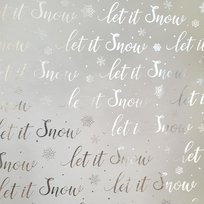 let it Snow let it
Snow let it Snow
let it Snow let it Snow
Snow let it Snow
let it Snow let it Snow
let it Snow let it
let it Snow let it Snow
let it Snow let it Snow